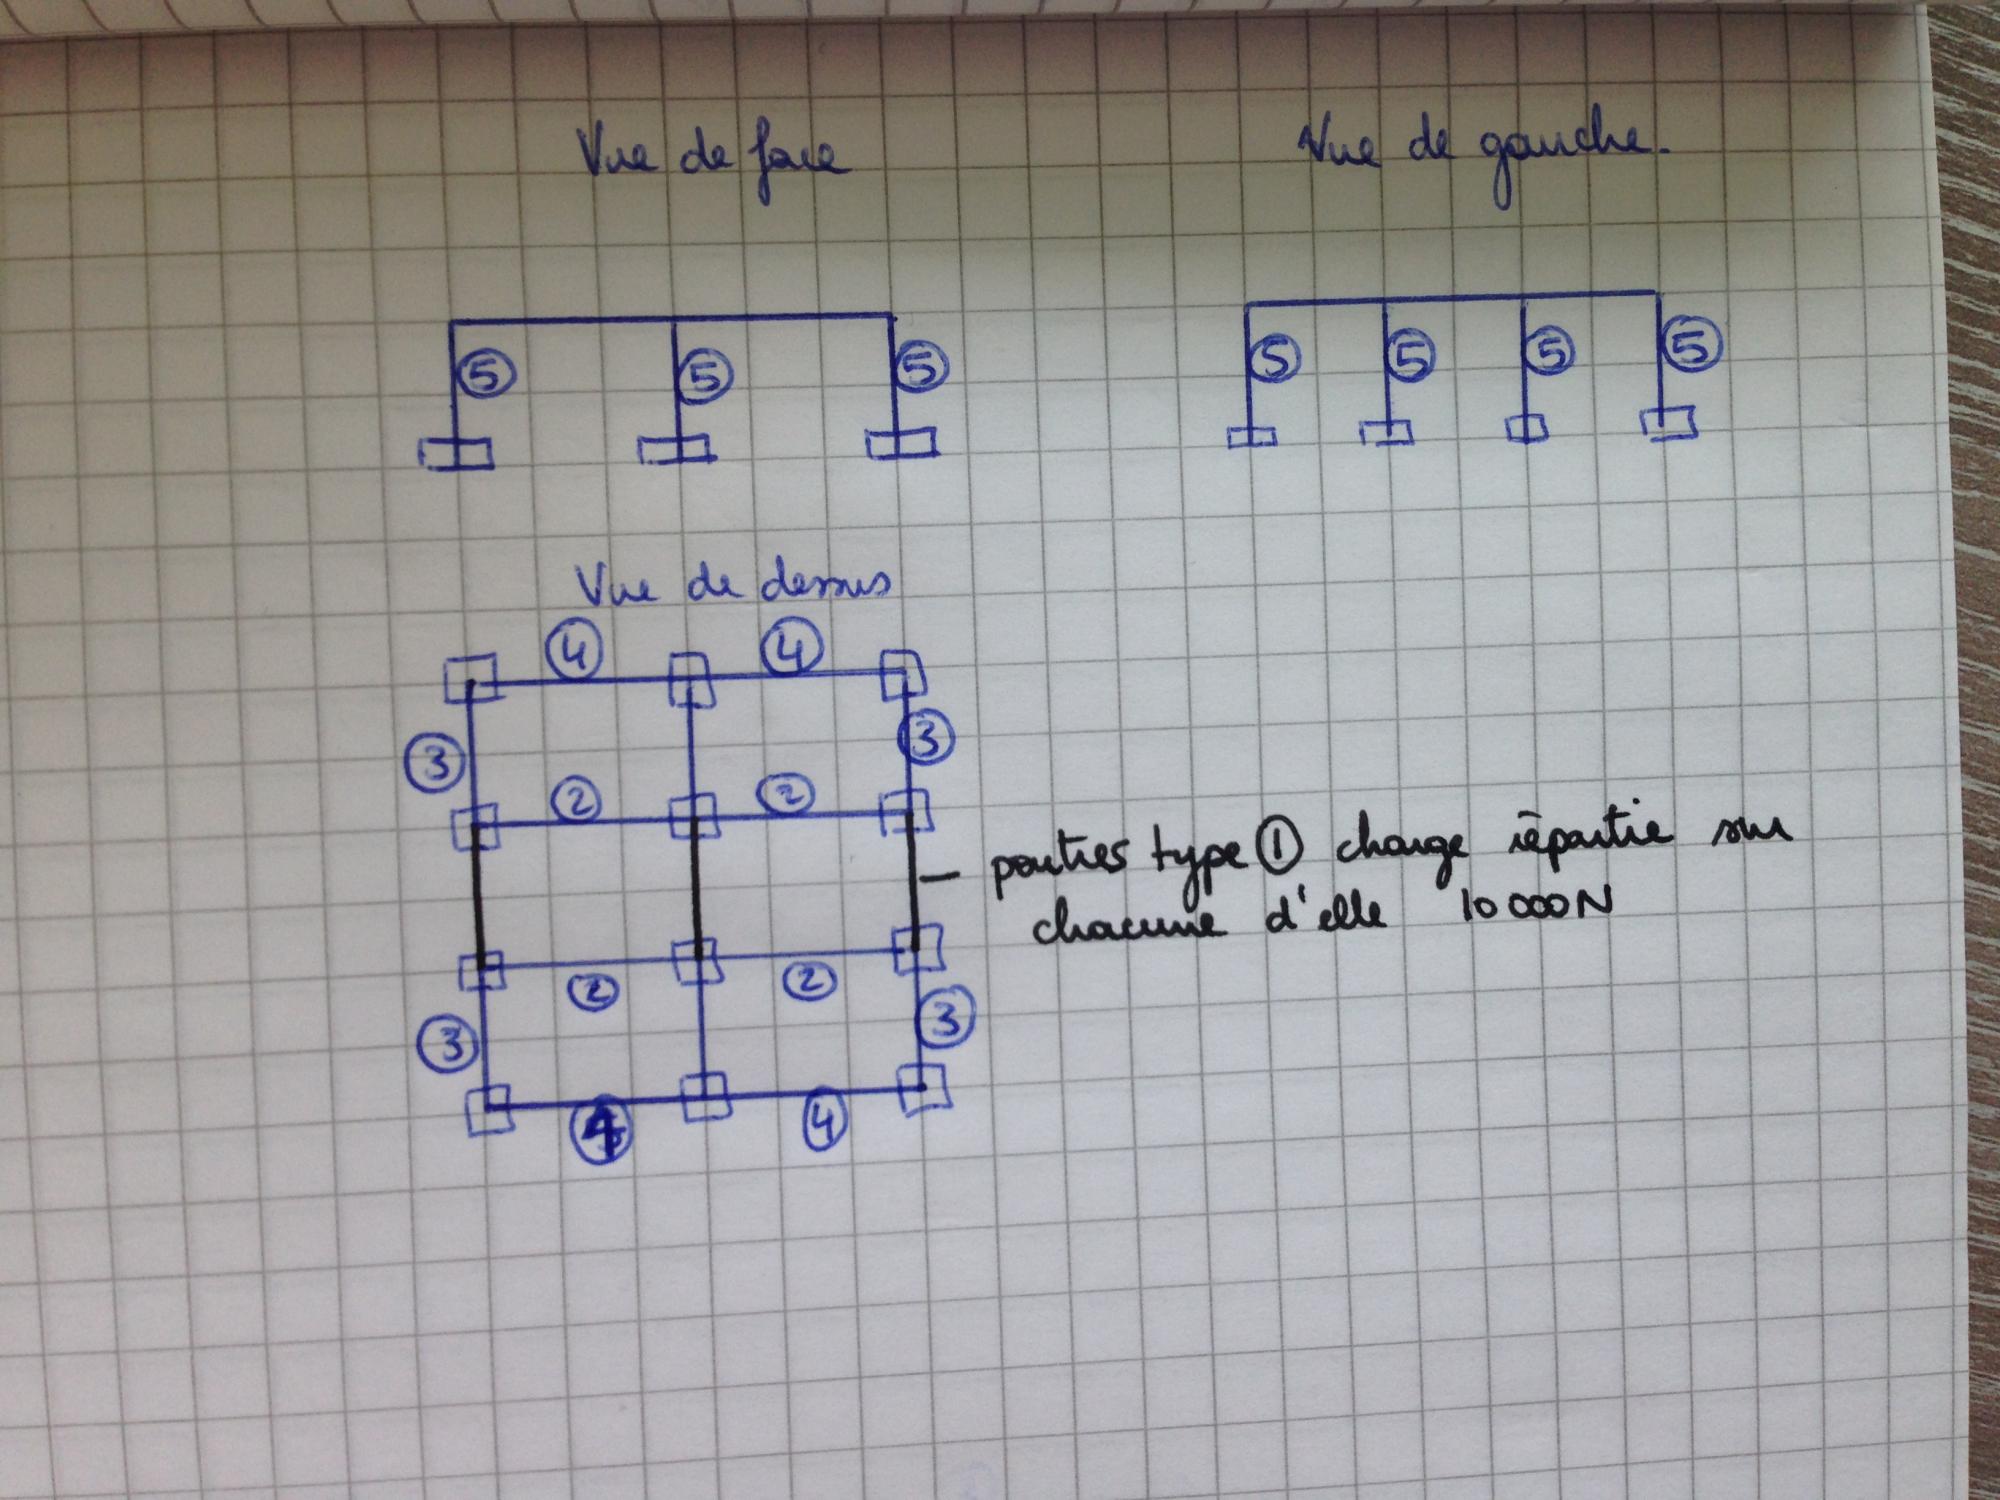 Vue de face
Vue de gauche.
5 5 5
5 5 5 5
Vue de dessus
4 4
3 3
2 2
poutres type 1 charge répartie sur
chacune d'elle 10 000N
2 2
3 3
4 4